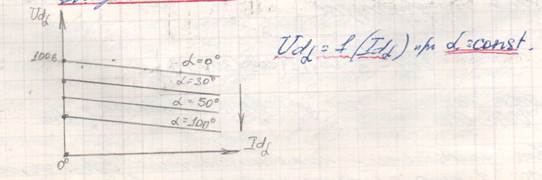 Udα
100В
α=0°
α=30°
α=50°
α=100°
Idα
0°
Udα = f (Idα) при α=const.